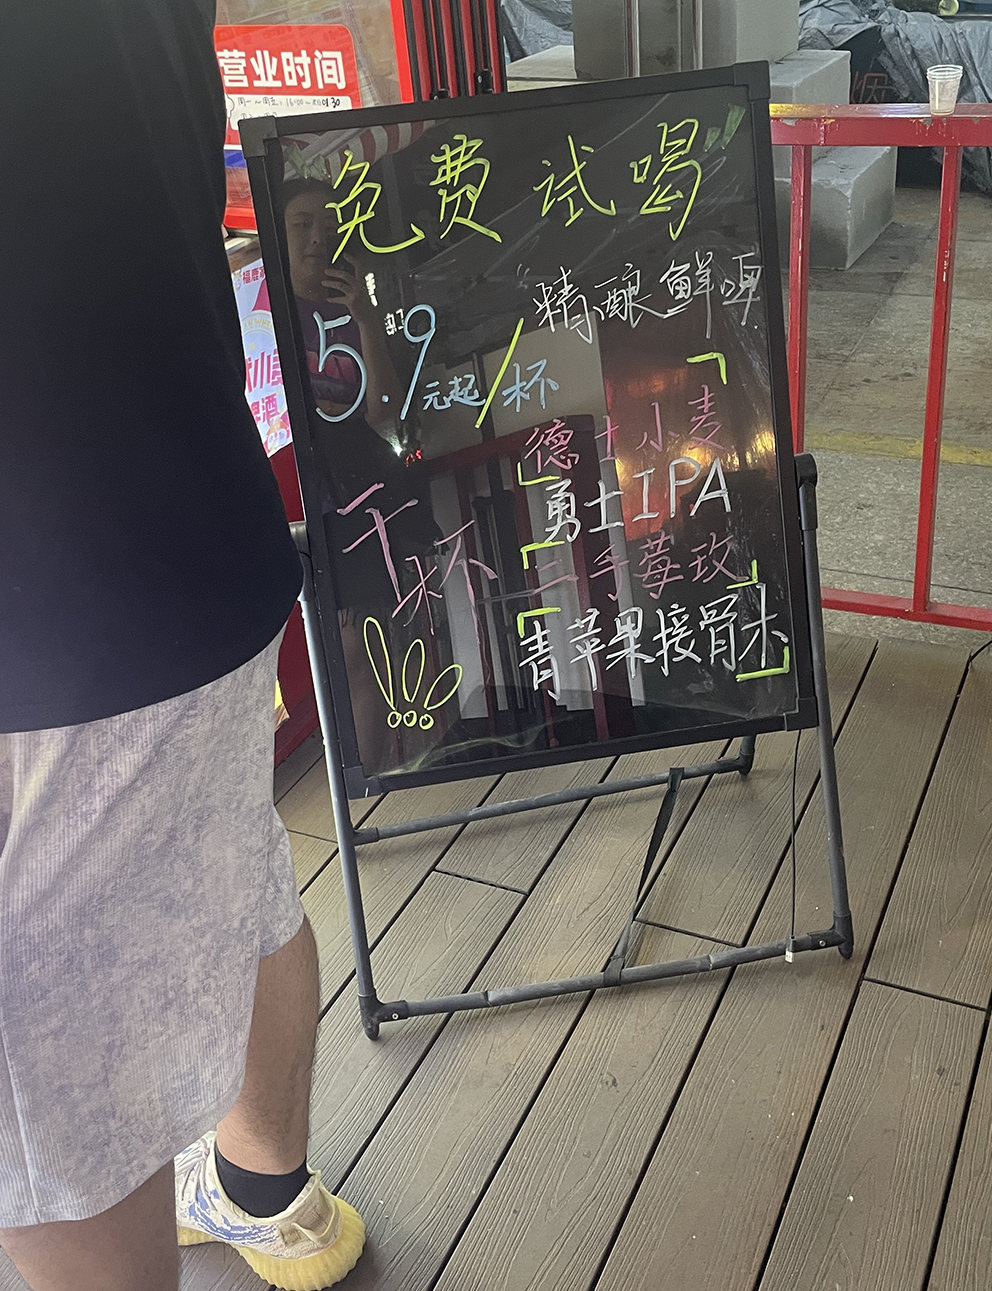 营业时间
周一~周五: 16:00~次日01:30
免费试喝
"精酿鲜啤"
5.9元起/杯
德士小麦
勇士IPA
干杯
三手莓玫
青苹果接骨木
小麦
啤酒